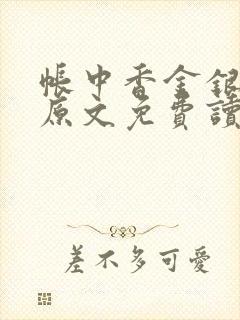 帳中香金銀
原文免費讀
差不多可愛